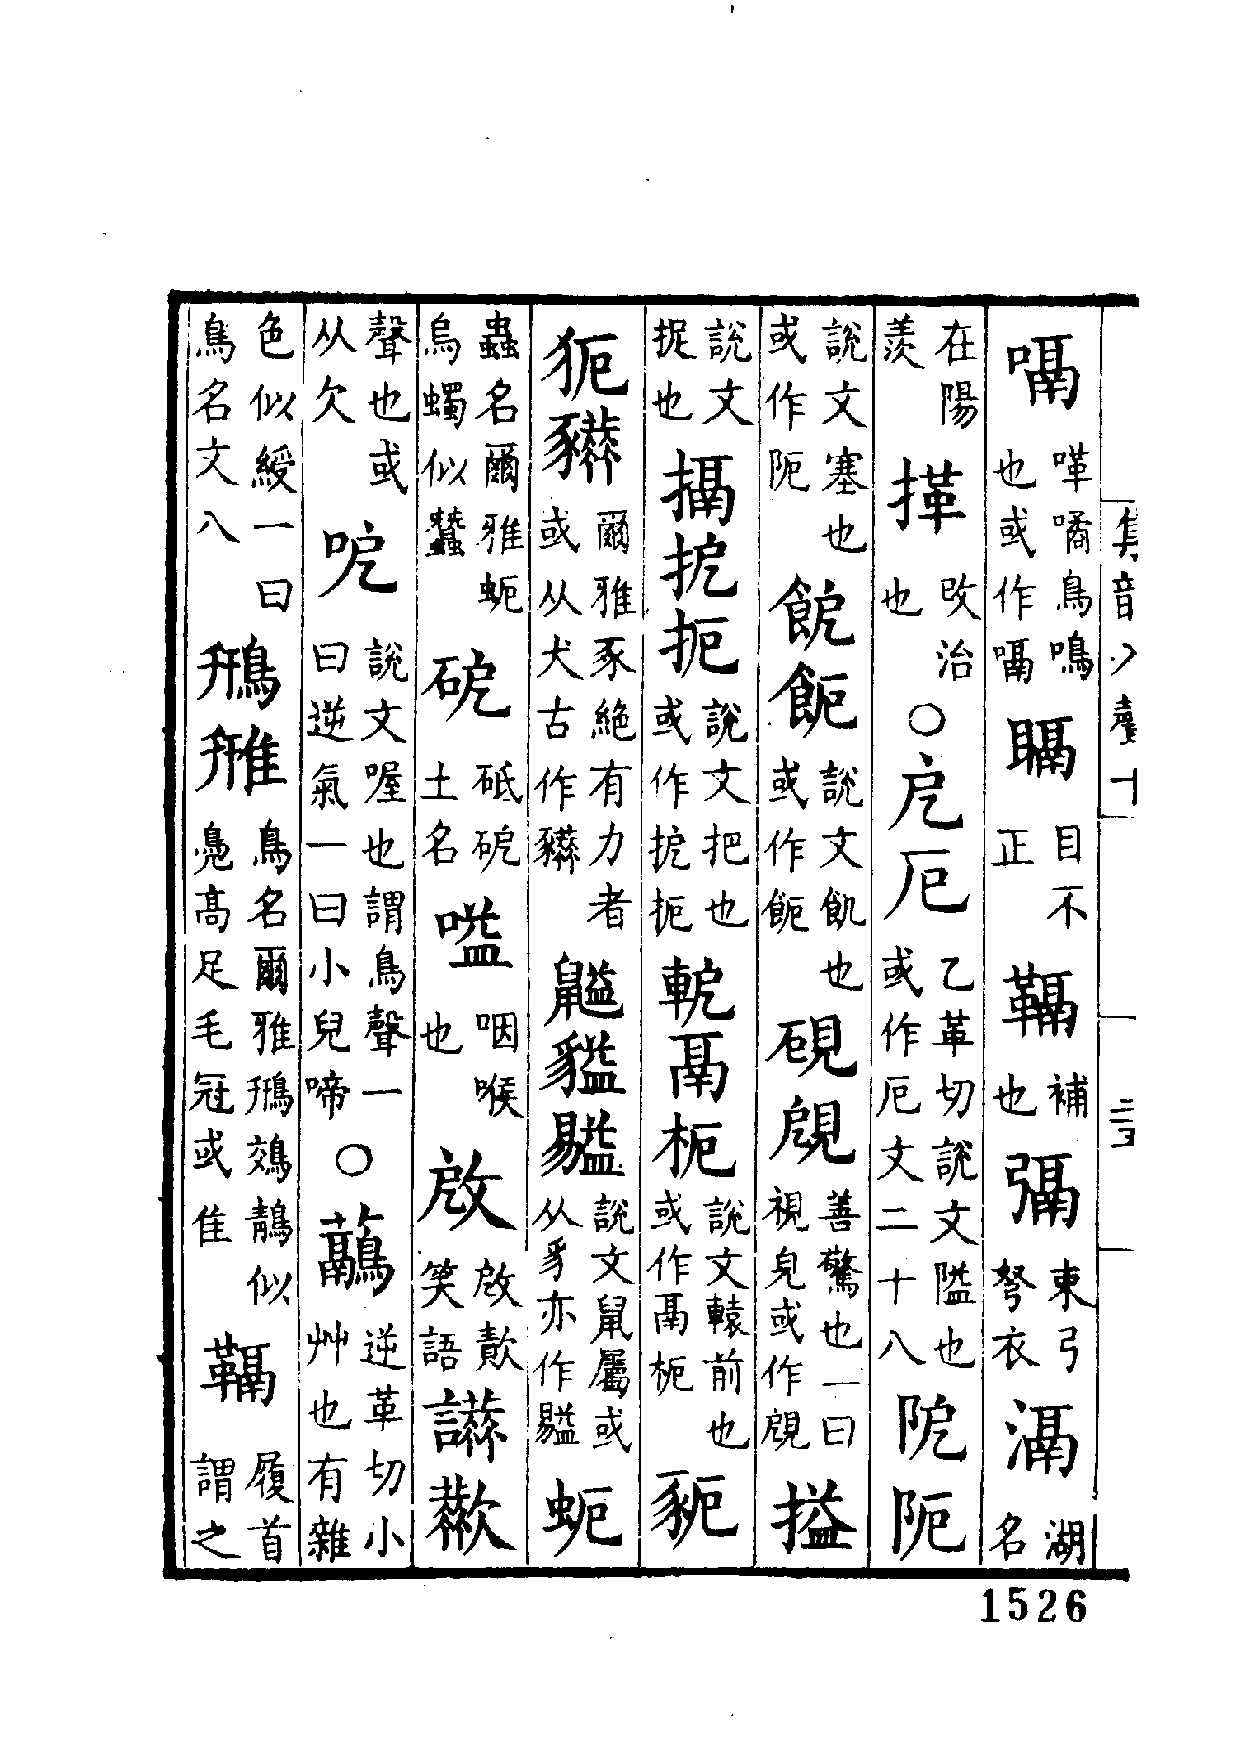 嗝嘩嘺鳥鳴也或作嗝䁇目不正鞷補也彁束弓弩衣滆湖名
在陽羨㨒改治也○戹厄乙革切說文隘也或作厄文二十八阸阨
說文塞也或作阨䬦飹說文飢也或作飹善驚也一曰視皃或作搤
說文捉也搹㧖扼說文把也或作㧖扼軶鬲枙說文轅前也或作鬲枙豟
爾雅豕絶有力者或从犬古作說文鼠屬或从豸亦作蚅
蟲名爾雅蚅烏蠋似蠶砨砥砨土名嗌咽喉也笑語
聲也或从欠呃說文喔也謂鳥聲一曰逆氣一曰小兒啼○虉逆革切小艸也有雜
色似綬一曰鳥名文八鳽鳥名爾雅鳽鵁鶄似鳧高足毛冠或隹鞷履首謂之
集音入聲十
1526